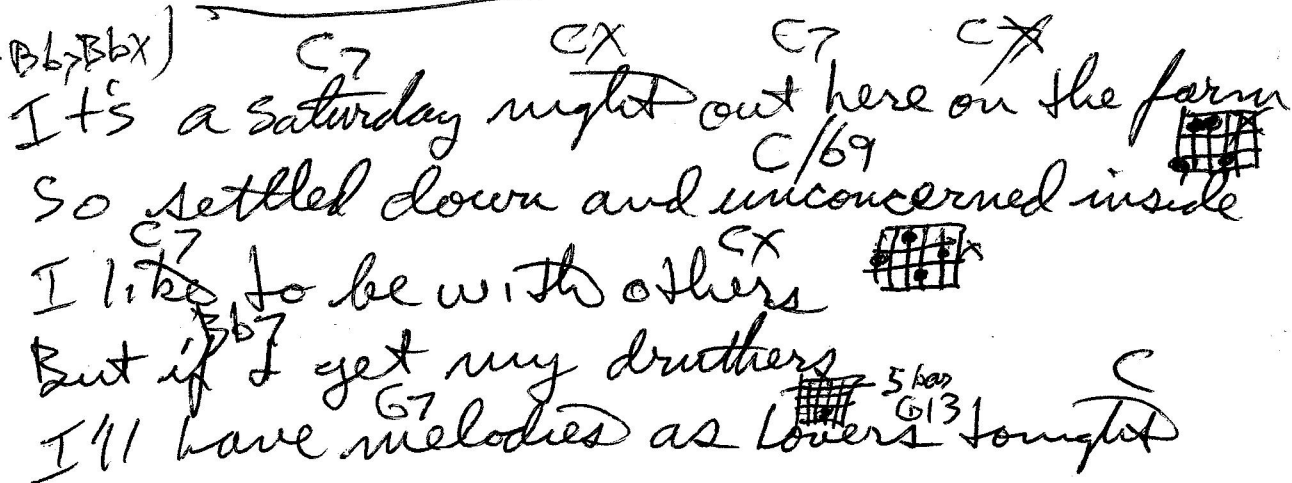 Bb7 BbX) C7 CX C7 CX
It's a saturday night out here on the farm
C/69
So settled down and unconcerned inside
C7 CX
I like to be with others
Bb7
But if I get my druthers
G7 5 bar G13 C
I'll have melodies as lovers tonight